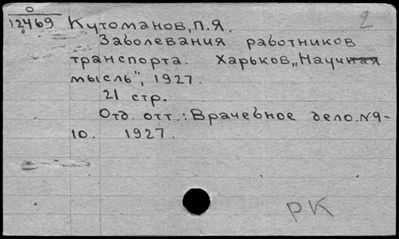 О
12769 Кутоманов, П.Я. 2
Заболевания работников
транспорта. Харьков, „Научная
мысль", 1927.
21 стр.
Отд. отт.: Врачебное дело. №9-
10. 1927.
РК